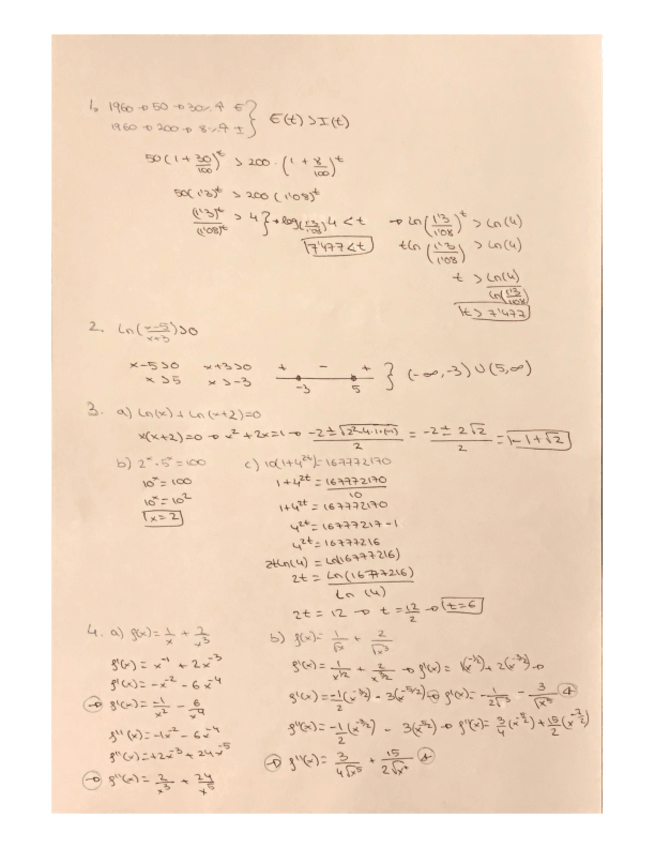 1. 1960 → 50 → 30% ↑ E
1960 → 200 → 8% ↑ I } E(t) > I(t)
50(1 + 30/100)^t > 200 · (1 + 8/100)^t
50(1'3)^t > 200(1'08)^t
(1'3)^t/(1'08)^t > 4 } → log(1'3/1'08) 4 < t
7'477 < t
→ ln(1'3/1'08)^t > ln(4)
t ln(1'3/1'08) > ln(4)
t > ln(4)/ln(1'3/1'08)
t > 7'477
2. ln(x-5/x+3) > 0
x-5>0 x+3>0 + - +
x>5 x>-3 -3 5 } (-∞,-3) ∪ (5,∞)
3. a) ln(x) + ln(x+2) = 0
x(x+2)=0 → x² + 2x = 1 → -2 ± √(2²-4·1·(-1))/2 = -2 ± 2√2/2 = -1 + √2
b) 2^x · 5^x = 100
10^x = 100
10^x = 10²
x = 2
c) 10(1+4^2t) = 167772170
1+4^2t = 167772170/10
1+4^2t = 167772170
4^2t = 16777217 - 1
4^2t = 16777216
2t ln(4) = ln(16777216)
2t = ln(16777216)/ln(4)
2t = 12 → t = 12/2 → t=6
4. a) f(x) = 1/x + 2/x³
f(x) = x^-1 + 2x^-3
f'(x) = -x^-2 - 6x^-4
→ f'(x) = -1/x² - 6/x⁴
f''(x) = -1x^-2 - 6x^-4
f''(x) = +2x^-3 + 24x^-5
→ f''(x) = 2/x³ + 24/x⁵
b) f(x) = 1/√x + 2/√x³
f(x) = 1/x^1/2 + 2/x^3/2 → f(x) = 1(x^-1/2) + 2(x^-3/2) →
f'(x) = -1/2(x^-3/2) - 3(x^-5/2) → f'(x) = -1/2√x³ - 3/√x⁵
f''(x) = -1/2(x^-3/2) - 3(x^-5/2) → f''(x) = 3/4(x^-5/2) + 15/2(x^-7/2)
→ f''(x) = 3/4√x⁵ + 15/2√x⁷